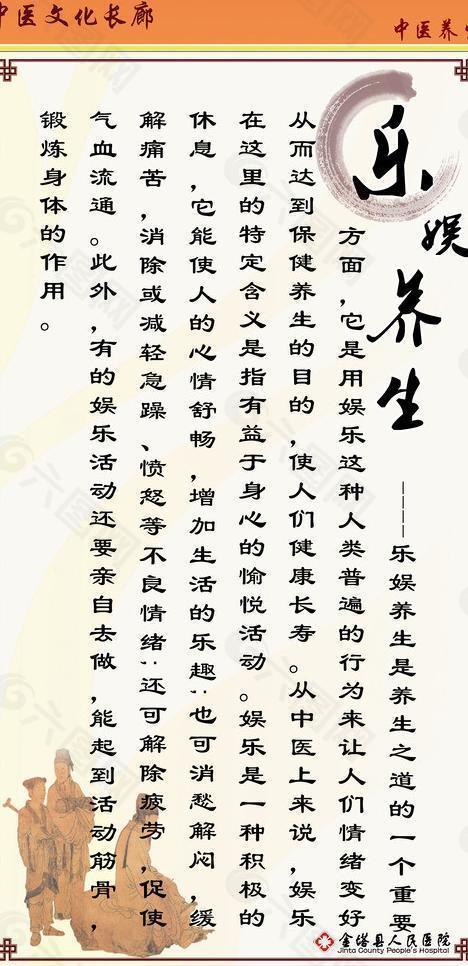 中医文化长廊
中医养生
乐娱养生
———乐娱养生是养生之道的一个重要
方面，它是用娱乐这种人类普遍的行为来让人们情绪变好
从而达到保健养生的目的，使人们健康长寿。从中医上来说，娱乐
在这里的特定含义是指有益于身心的愉悦活动。娱乐是一种积极的
休息，它能使人的心情舒畅，增加生活的乐趣；也可消愁解闷，缓
解痛苦，消除或减轻急躁、愤怒等不良情绪；还可解除疲劳，促使
气血流通。此外，有的娱乐活动还要亲自去做，能起到活动筋骨，
锻炼身体的作用。
金塔县人民医院
Jinta County People's Hospital
六图网